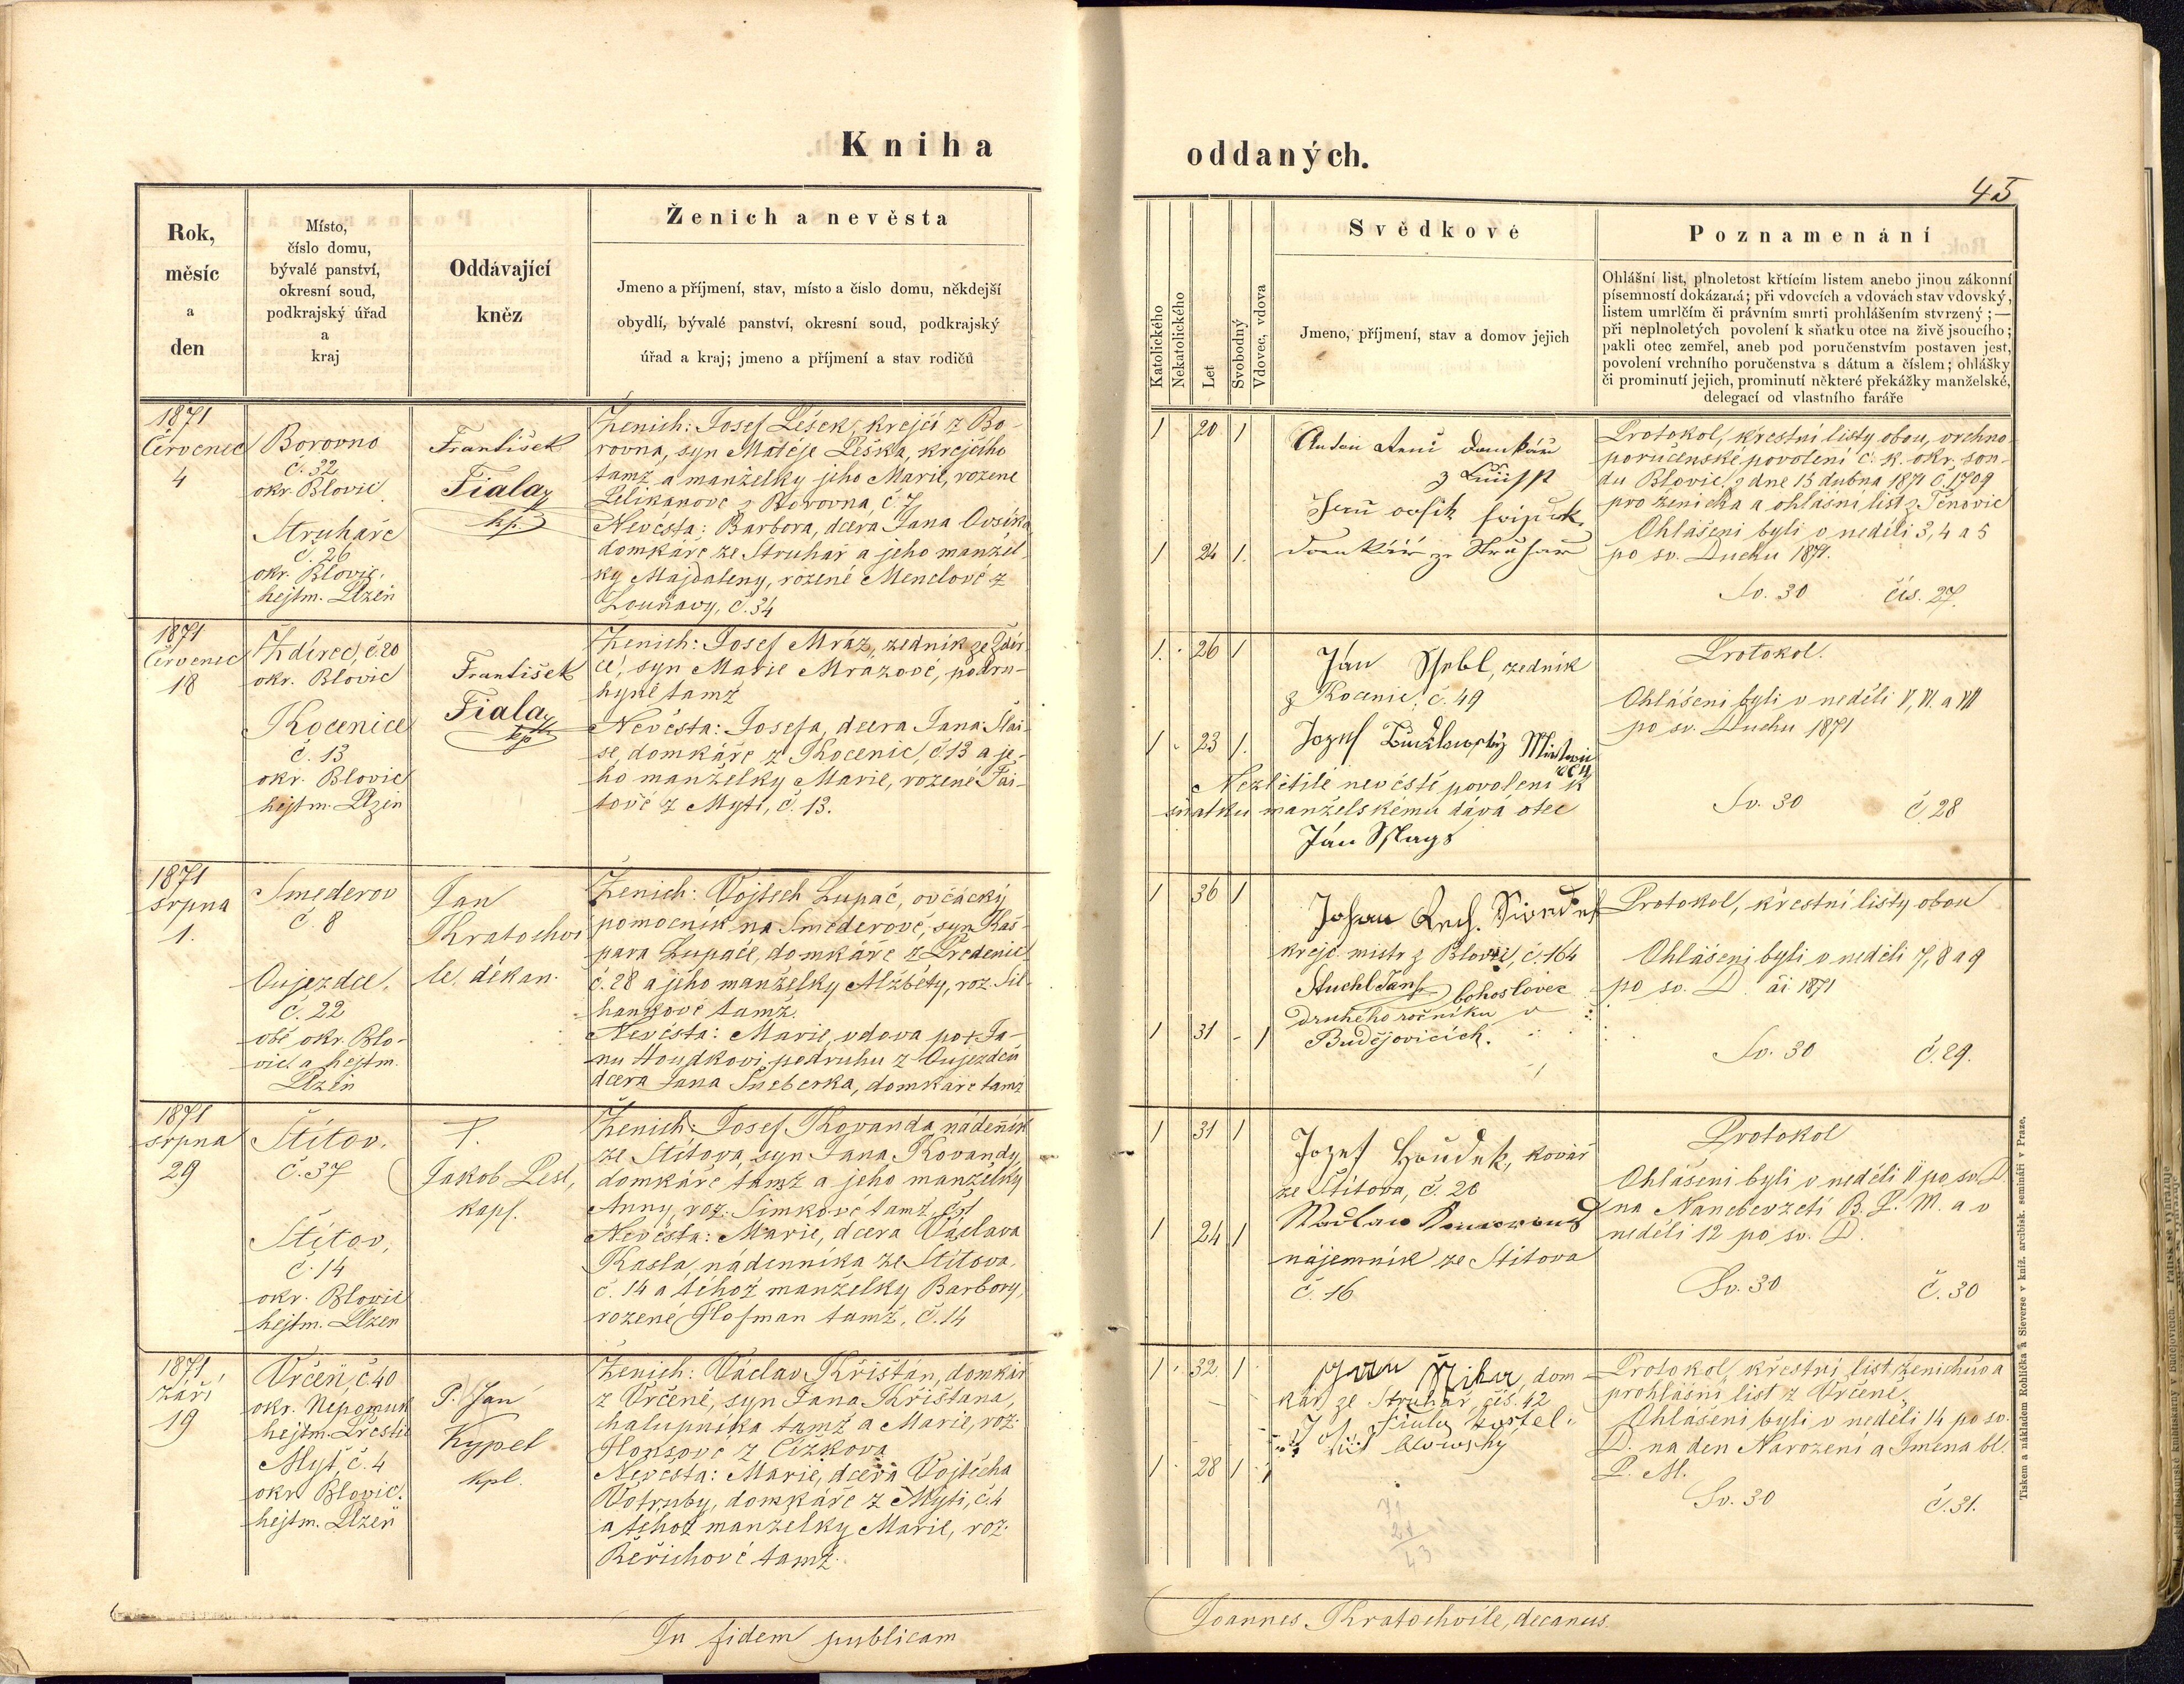 Kniha
oddaných.
45
Rok,
měsíc
a
den
Místo,
číslo domu,
bývalé panství,
okresní soud,
podkrajský úřad
a
kraj
Oddávající
kněz
Ženich a nevěsta
Jmeno a příjmení, stav, místo a číslo domu, někdejší
obydlí, bývalé panství, okresní soud, podkrajský
úřad a kraj; jmeno a příjmení a stav rodičů
Katolického
Nekatolického
Let
Svobodný
Vdovec, vdova
Svědkové
Jmeno, příjmení, stav a domov jejich
Poznamenání
Ohlášní list, plnoletost křtícím listem anebo jinou zákonní
písemností dokázaná; při vdovcích a vdovách stav vdovský,
listem umrlčím či právním smrti prohlášením stvrzený; —
při neplnoletých povolení k sňatku otce na živě jsoucího;
pakli otec zemřel, aneb pod poručenstvím postaven jest,
povolení vrchního poručenstva s dátum a číslem; ohlášky
či prominutí jejich, prominutí některé překážky manželské,
delegací od vlastního faráře
1871
Červenec
4
Borovno
č. 32
okr. Blovic
Struhaře
č. 26
okr. Blovic.
hejtm. Plzeň
František
Fiala
kp.
Ženich: Josef Lešek, krejčí z Bo-
rovna, syn Matěje Leška, krejčího
tamž a manželky jeho Marie, rozené
Pelikánové z Borovna, č. 7
Nevěsta: Barbora, dcera Jana Ovsíka
domkáře ze Struhař a jeho manžel-
ky Majdaleny, rozené Menclové z
Louňavy, č. 34
1 20 1
domkář
1 24 1.
domkář ze Struhař
Protokol, křestní listy obou, vrchno-
poručenské povolení c. k. okr. sou-
du Blovic, z dne 13 dubna 1871 č. 1709
pro ženicha a ohlášní list z Těnovic
Ohlášeni byli v neděli 3, 4 a 5
po sv. Duchu 1871.
Sv. 30 čís. 27.
1871
Červenec
18
Ždírec, č. 20
okr. Blovic
Kocenice
č. 13
okr. Blovic
hejtm. Plzeň
František
Fiala
kp
Ženich: Josef Mráz, zedník ze Ždír-
ce, syn Marie Mrázové, podru-
hyně tamž
Nevěsta: Josefa, dcera Jana Šlai-
se, domkáře z Kocenic, č. 13 a je-
ho manželky Marie, rozené Fai-
tové z Mýti, č. 13.
1. 26 1
Ján zedník
z Kocenic, č. 49
1 23 1.
Jozef
Nezletilé nevěstě povolení k
sňatku manželskému dává otec
Ján
Protokol.
Ohlášeni byli v neděli V, VI. a VII
po sv. Duchu 1871
Sv. 30 č. 28
1871
srpna
1.
Smederov
č. 8
Oujezdec.
č. 22
obě okr. Blo-
vic a hejtm.
Plzeň
Jan
Kratochvi
le, děkan.
Ženich: Vojtěch Lupač, ovčácký
pomocník na Smederově, syn Kaš-
para Lupače, domkáře z Předenic
č. 28 a jeho manželky Alžběty, roz. Sil-
hankové tamž.
Nevěsta: Marie, vdova po + Ja-
nu Houdkovi, podruhu z Oujezdce
dcera Jana Šneberka, domkáře tamž
1 36 1
Johan
krejč. mistr z Blovic, č. 164
Stuchl Jan bohoslovec
druhého ročníku v
Budějovicích.
1 31 - 1
Protokol, křestní listy obou
Ohlášeni byli v neděli 7, 8 a 9
po sv. D. 1871
Sv. 30 č. 29.
1871
srpna
29
Štítov.
č. 37
Štítov,
č. 14
okr. Blovic
hejtm. Plzeň
P.
Jakob Lesl,
kapl.
Ženich: Josef Kovanda, nádenník
ze Štítova, syn Jana Kovandy,
domkáře tamž a jeho manželky
Anny, roz. Šimkové tamž,
Nevěsta: Marie, dcera Václava
Kasla, nádenníka ze Štítova,
č. 14 a téhož manželky Barbory,
rozené Hofman tamž, č. 14
1 31 1
Jozef Houdek, kovář
ze Štítova, č. 20
1 24 1
nájemník ze Štítova
č. 16
Protokol
Ohlášeni byli v neděli II po sv. D.
na Nanebevzetí B. P. M. a v
neděli 12 po sv. D.
Sv. 30 č. 30
1871
září
19
Vrčeň, č. 40
okr. Nepomuk
hejtm. Přeštic
Mýť, č. 4
okr. Blovic.
hejtm. Plzeň
P. Jan
Kypet
kpl.
Ženich: Václav Křišťán, domkář
z Vrčeně, syn Jana Křišťana,
chalupníka tamž a Marie, roz.
Honsové z Čížkova
Nevěsta: Marie, dcera Vojtěcha
Votruby, domkáře z Mýti, č. 4
a téhož manželky Marie, roz.
Beřichové tamž.
1 32 1
dom-
kář ze Struhař, čís. 42
1 28 1
Protokol, křestní list ženichův a
prohlášní list z Vrčeně
Ohlášeni byli v neděli 14 po sv.
D. na den Narození a Jmena bl.
P. M.
Sv. 30 č. 31.
In fidem publicam
Joannes Kratochvile, decanus.
Tiskem a nákladem Rohlíčka a Sieverse v kníž. arcibisk. semináři v Praze.